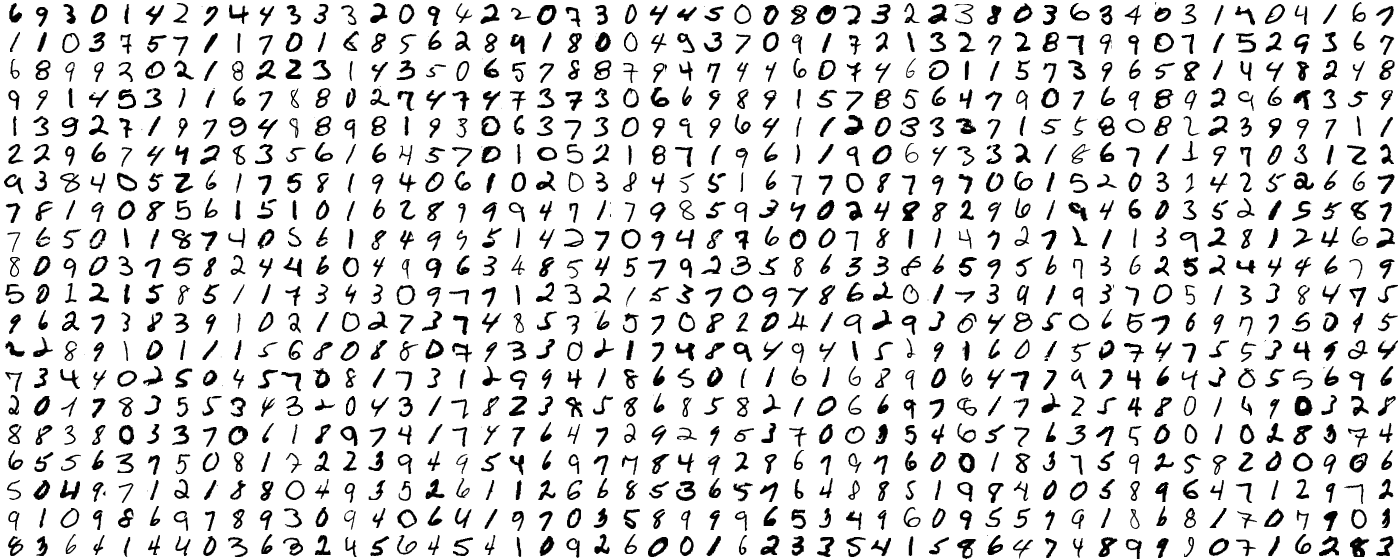 6 9 3 0 1 4 2 7 4 4 3 3 3 2 0 9 4 2 2 0 7 3 0 4 4 5 0 0 8 0 2 3 2 2 3 8 0 3 6 3 4 0 3 1 4 0 4 1 6 7
1 1 0 3 7 5 7 1 1 7 0 1 6 8 5 6 2 8 9 1 8 0 0 4 9 3 7 0 9 1 7 2 1 3 2 7 2 8 7 9 9 0 7 1 5 2 9 3 6 7
6 8 9 9 2 0 2 1 8 2 2 3 1 4 3 5 0 6 5 7 8 8 7 9 4 7 4 4 6 0 7 4 6 0 1 1 5 7 3 9 6 5 8 1 4 4 8 2 4 8
9 9 1 4 5 3 1 1 6 7 8 8 0 2 7 4 7 4 7 3 7 3 0 6 6 9 8 9 1 5 7 8 5 6 4 7 9 0 7 6 9 8 9 2 9 6 9 3 5 9
1 3 9 2 7 1 9 7 9 4 8 8 9 8 1 9 3 0 6 3 7 3 0 9 9 9 6 4 1 1 2 0 3 3 3 7 1 5 5 8 0 8 2 2 3 9 9 7 1 1
2 2 9 6 7 4 4 2 8 3 5 6 1 6 4 5 7 0 1 0 5 2 1 8 7 1 9 6 1 1 9 0 6 4 3 3 2 1 8 6 7 1 1 9 7 0 3 1 2 2
9 3 8 4 0 5 2 6 1 7 5 8 1 9 4 0 6 1 0 2 0 3 8 4 5 5 1 6 7 7 0 8 7 9 7 0 6 1 5 2 0 3 1 4 2 5 2 6 6 7
7 8 1 9 0 8 5 6 1 5 1 0 1 6 2 8 9 9 9 4 7 1 7 9 8 5 9 3 7 0 2 4 8 8 2 9 6 1 9 4 6 0 3 5 2 1 5 5 8 7
7 6 5 0 1 1 8 7 4 0 5 6 1 8 4 9 9 5 1 4 2 7 0 9 4 8 7 6 0 0 7 8 1 1 4 7 2 7 2 1 1 3 9 2 8 1 2 4 6 2
8 0 9 0 3 7 5 8 2 4 4 6 0 4 9 9 6 3 4 8 5 4 5 7 9 2 3 5 8 6 3 3 8 6 5 9 5 6 7 3 6 2 5 2 4 4 4 6 7 9
5 0 1 2 1 5 8 5 1 1 7 3 4 3 0 9 7 7 1 2 3 2 1 5 3 7 0 9 7 8 6 2 0 1 7 3 9 1 9 3 7 0 5 1 3 3 8 4 7 5
9 6 2 7 3 8 3 9 1 0 2 1 0 2 7 3 7 4 8 5 3 6 5 7 0 8 2 0 4 1 9 2 9 3 0 4 8 5 0 6 5 7 6 9 7 7 5 0 9 5
2 2 8 9 1 0 1 1 1 5 6 8 0 8 8 0 7 9 3 3 0 2 1 7 4 8 9 4 9 4 1 5 2 9 1 6 0 1 5 0 7 4 7 5 5 3 4 9 2 4
7 3 4 4 0 2 5 0 4 5 7 0 8 1 7 3 1 2 9 9 4 1 8 6 5 0 1 1 6 1 6 8 9 0 6 4 7 7 9 7 4 6 4 3 0 5 5 6 9 6
2 0 1 7 8 3 5 5 3 4 3 2 0 4 3 1 7 8 2 3 8 5 8 6 8 5 8 2 1 0 6 6 9 7 6 1 7 2 2 5 4 8 0 1 6 9 0 3 2 8
8 8 3 8 0 3 3 7 0 6 1 8 9 7 4 1 7 4 7 6 4 7 2 9 2 9 5 3 7 0 0 3 5 4 6 5 7 6 3 7 5 0 0 1 0 2 8 3 7 4
6 5 5 6 3 7 5 0 8 1 7 2 2 3 9 4 9 5 4 6 9 7 7 8 4 9 2 8 6 7 9 7 6 0 0 1 8 3 7 5 9 2 5 8 2 0 0 9 0 6
5 0 4 9 7 1 2 1 8 8 0 4 9 3 5 2 6 1 1 2 6 6 8 5 3 6 5 7 6 4 8 8 5 1 9 8 4 0 0 5 8 9 6 4 7 1 2 9 7 2
9 1 0 9 8 6 9 7 8 9 3 0 9 4 0 6 4 1 9 7 0 3 5 8 9 9 9 6 5 3 4 9 6 0 9 5 5 7 9 1 8 6 8 1 7 0 7 9 0 3
8 3 6 4 1 4 4 0 3 6 3 2 4 5 6 4 5 4 1 0 9 2 6 0 0 1 6 2 3 3 5 4 1 5 8 6 4 7 4 8 9 9 9 0 7 1 6 2 8 3